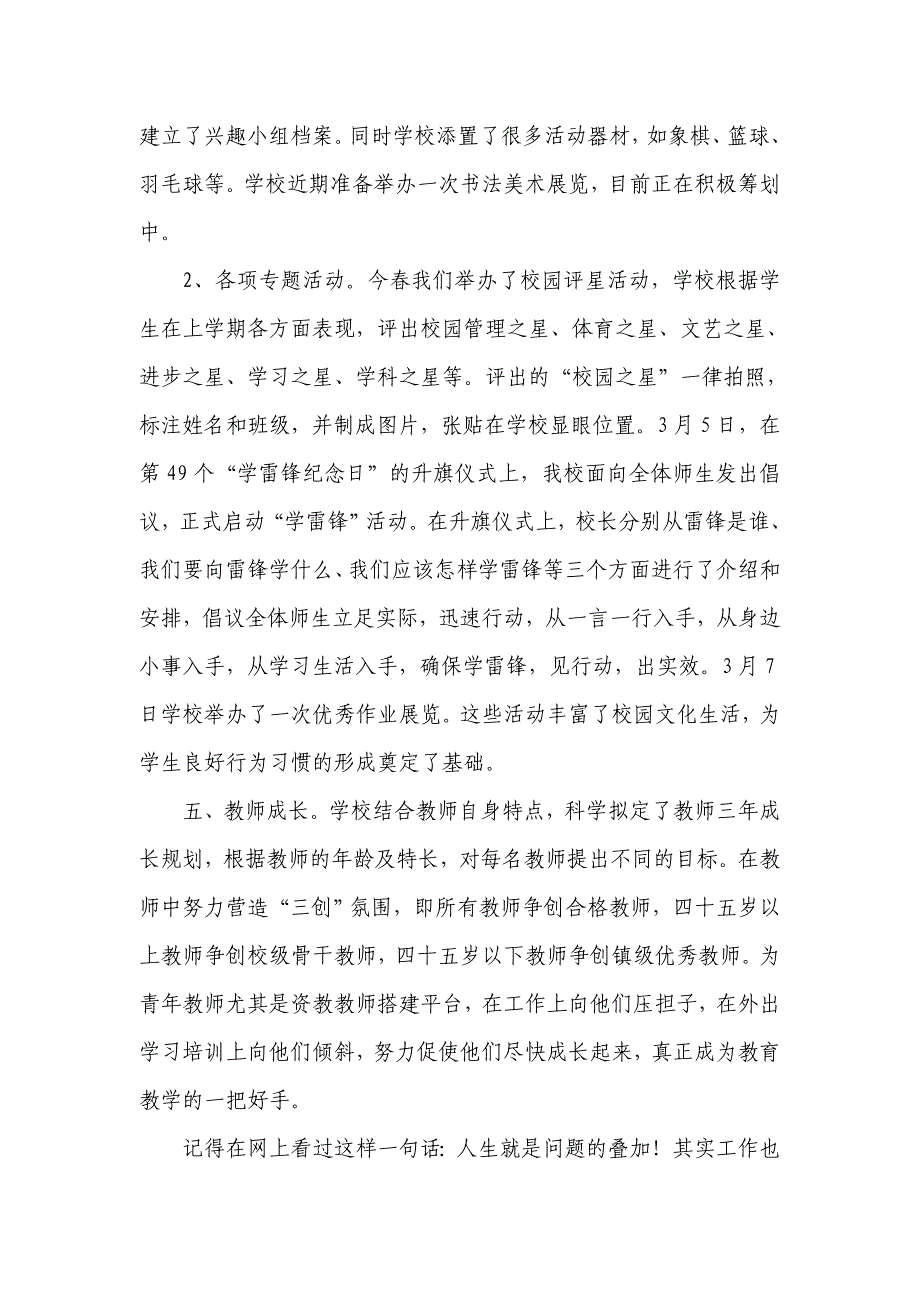 建立了兴趣小组档案。同时学校添置了很多活动器材，如象棋、篮球、
羽毛球等。学校近期准备举办一次书法美术展览，目前正在积极筹划
中。
2、各项专题活动。今春我们举办了校园评星活动，学校根据学
生在上学期各方面表现，评出校园管理之星、体育之星、文艺之星、
进步之星、学习之星、学科之星等。评出的“校园之星”一律拍照，
标注姓名和班级，并制成图片，张贴在学校显眼位置。3 月 5 日，在
第 49 个“学雷锋纪念日”的升旗仪式上，我校面向全体师生发出倡
议，正式启动“学雷锋”活动。在升旗仪式上，校长分别从雷锋是谁、
我们要向雷锋学什么、我们应该怎样学雷锋等三个方面进行了介绍和
安排，倡议全体师生立足实际，迅速行动，从一言一行入手，从身边
小事入手，从学习生活入手，确保学雷锋，见行动，出实效。3 月 7
日学校举办了一次优秀作业展览。这些活动丰富了校园文化生活，为
学生良好行为习惯的形成奠定了基础。
五、教师成长。学校结合教师自身特点，科学拟定了教师三年成
长规划，根据教师的年龄及特长，对每名教师提出不同的目标。在教
师中努力营造“三创”氛围，即所有教师争创合格教师，四十五岁以
上教师争创校级骨干教师，四十五岁以下教师争创镇级优秀教师。为
青年教师尤其是资教教师搭建平台，在工作上向他们压担子，在外出
学习培训上向他们倾斜，努力促使他们尽快成长起来，真正成为教育
教学的一把好手。
记得在网上看过这样一句话：人生就是问题的叠加！其实工作也